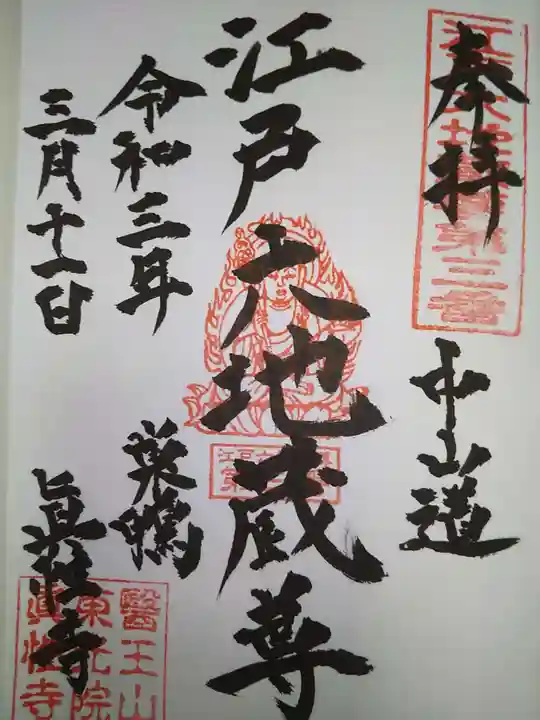 奉拝
中山道
江戸六地蔵尊
令和三年
巣鴨
三月十一日
眞性寺
江戸六地蔵第三番
醫王山
東光院
眞性寺